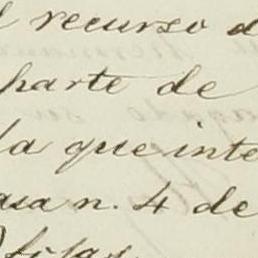 l recurso d
parte de
la que inte
asa n. 4 de